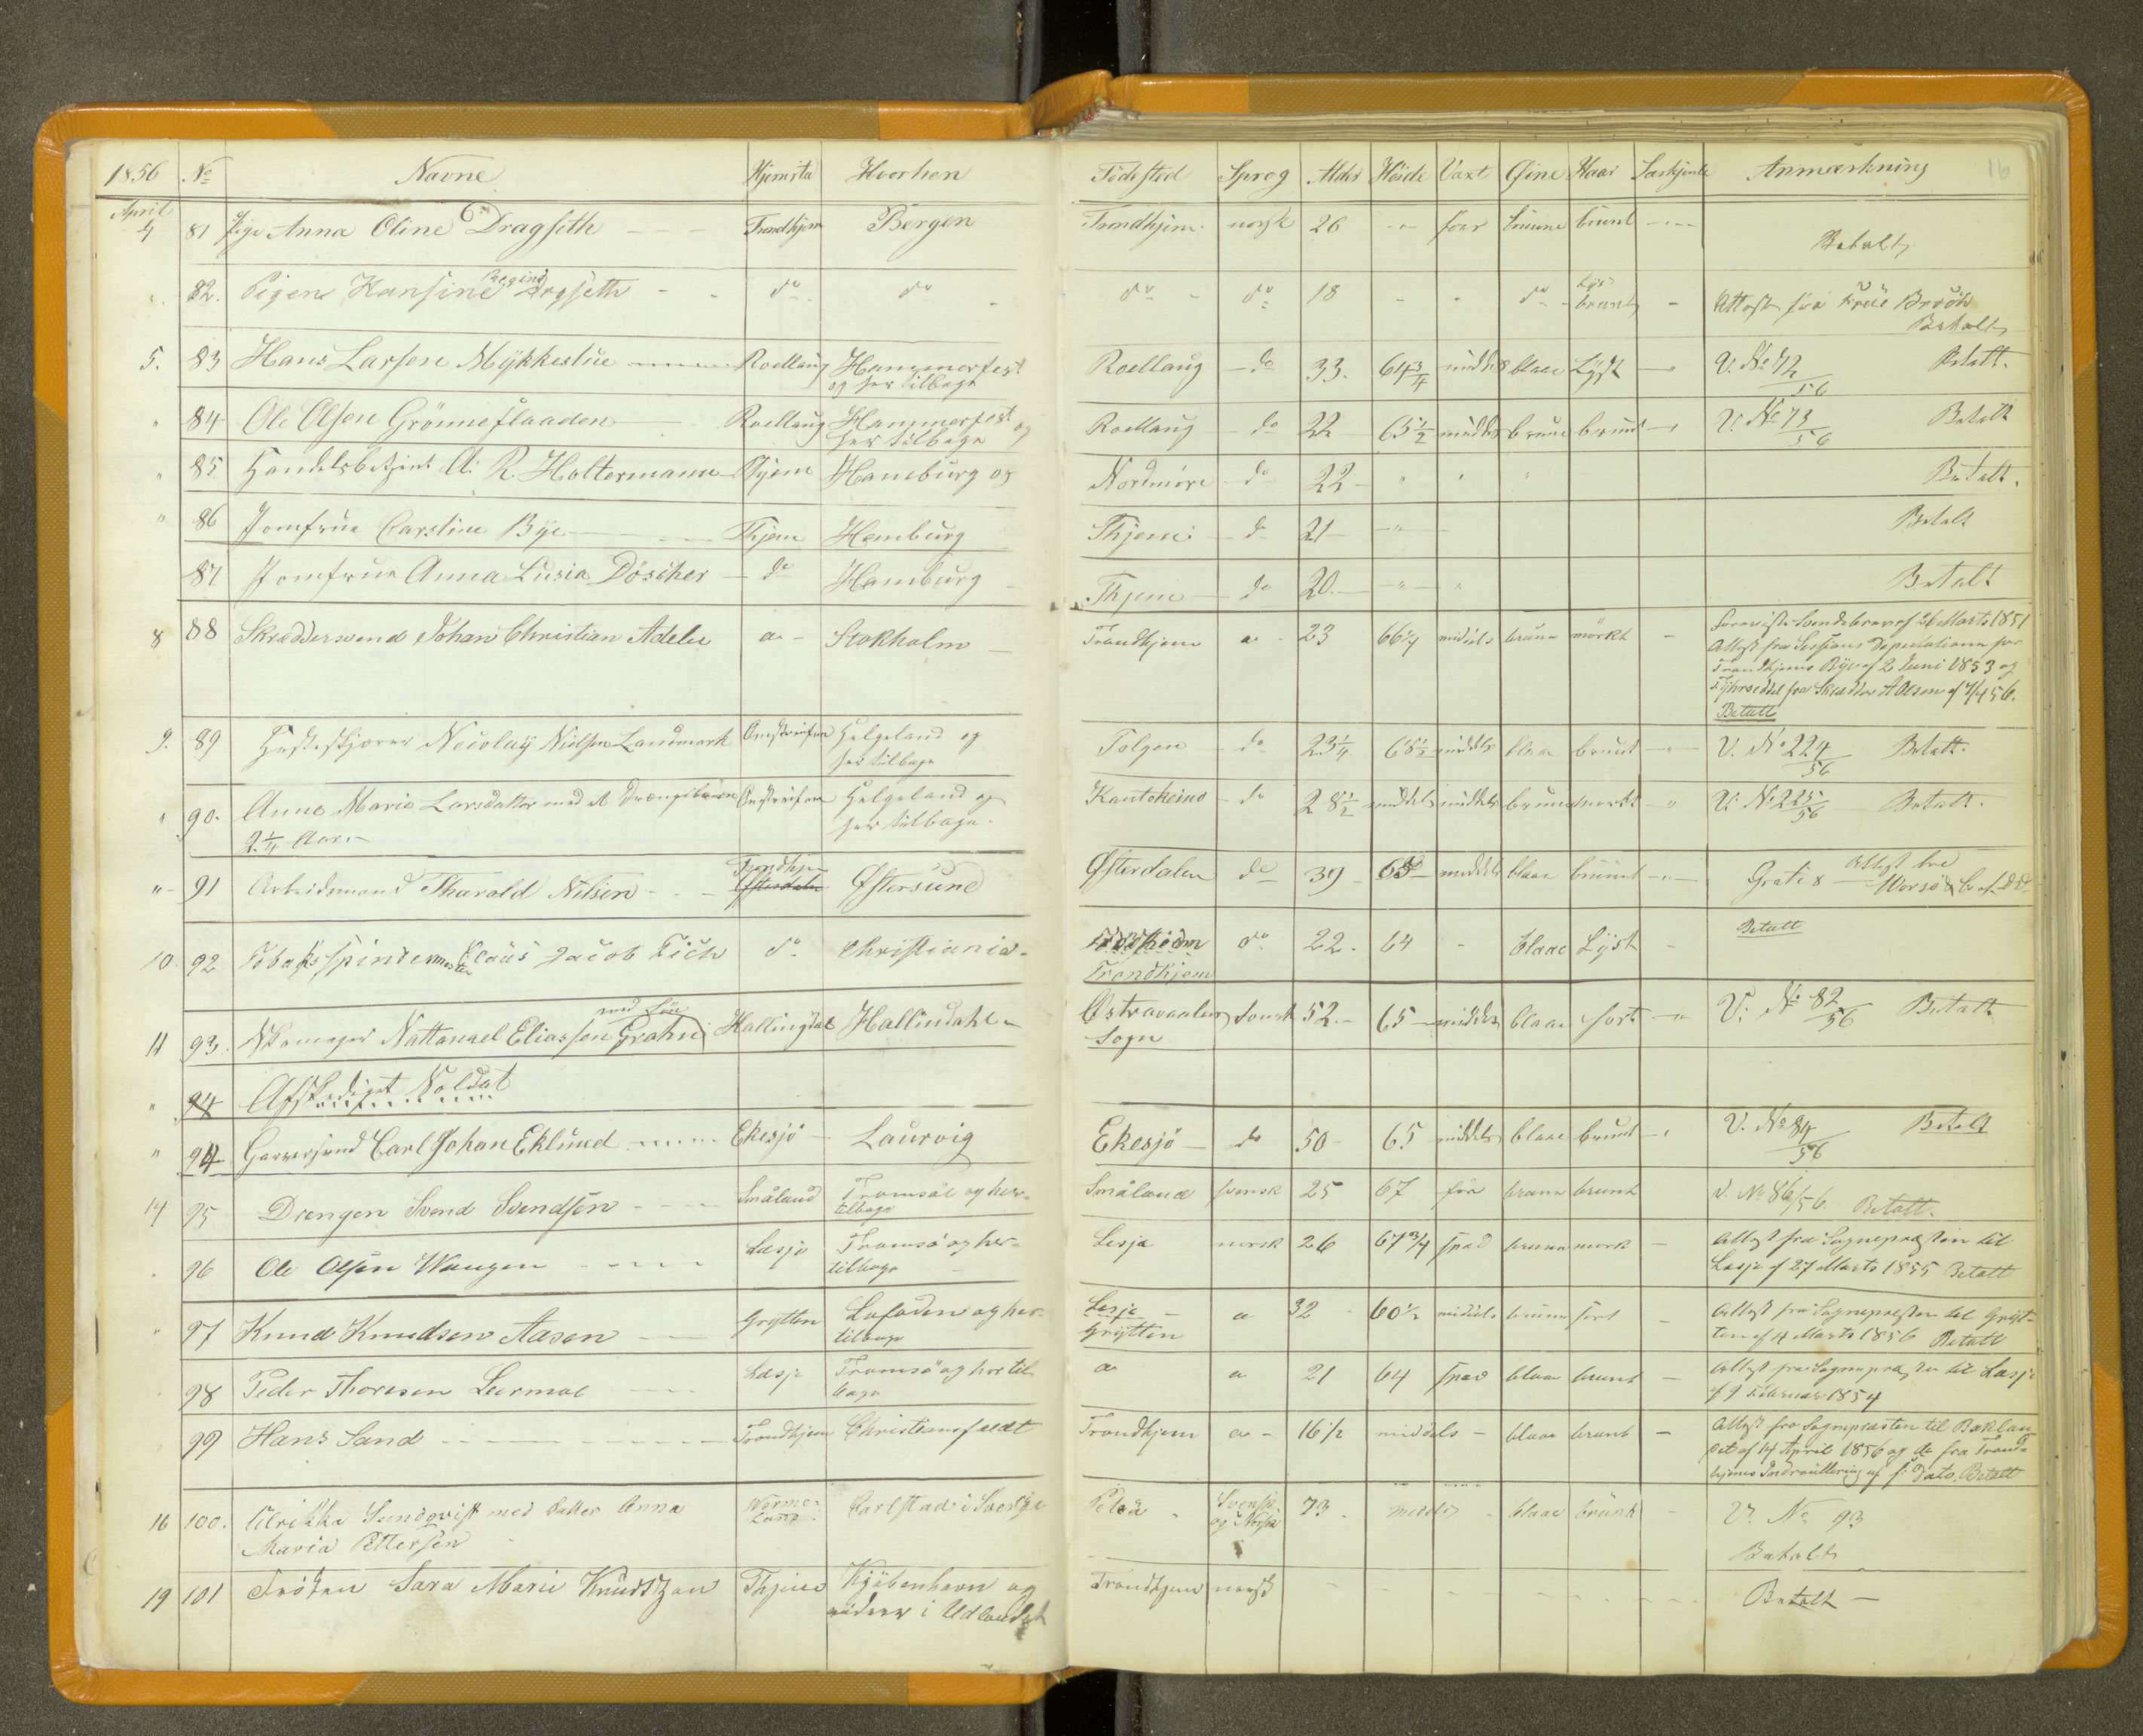 1856 No Navne Hjemsted Hvorhen Fødested Sprog Alder Höide Vaxt Øine Haar Anmærkning 16
April
4 81 Pige Anna Oline Dragseth Trondhjem Bergen Trondhjem norsk 26 svær brune brunt
Betalt
82. Pigen Hansine Regine Dragseth do do do do 18 do Lys brunt Attest fra Frue Brook
Betalt
5. 83 Hans Larsen Mykkestue Roellaug Hammerfest Roellaug do 33. 64 3/4 middels blaae Lyst V. No 72/56 Betalt.
og her tilbage
84 Ole Olsen Grönneflaaden Roellaug Hammerfest og Roellaug do 22 65 1/2 middels brune brunt V. No 73/56 Betalt
her tilbage
85 Handelsbetjent A. R. Holtermann Thjem Hamburg og Nordmöre do 22 Betalt.
86 Jomfrue Carstine Bye Thjem Hamburg Thjem do 21 Betalt
87 Jomfrue Anna Lusia Döscher do Hamburg Thjem do 20 Betalt
8 88 Skreddersvend Johan Christian Adeler a Stokholm Trondhjem a 23 66 1/4 middels brune mörkt Foreviste Svendebrev af Marts 1851
Attest fra Sessions Deputationen for
Trondhjems Bye af 2 Juni 1853 og
fra Skredder A Olsen af 7/4 56.
Betalt
9. 89 Nicolay Nielsen Landmark Omstreifer Helgeland og Tolgen do 23 1/4 65 1/2 middels blaa brunt V. No 224/56 Betalt.
her tilbage
90. Anne Marie Larsdatter med et Drengebarn Omstreifer Helgeland og Kautokeino do 28 1/2 middels middels brune mörkt V. No 225/56 Betalt.
2 1/4 Aar. her tilbage.
91 Arbeidsmand Tharald Nilsen Trondhjem Østersund Østerdalen do 39 middels blaae brunt Gratis Attest
Østerdalen
10 92 Tobaksspindermester Claus Jacob Fick do Christiania. do 22. 64 blaae Lyst Betalt
Trondhjem
11 93. Nattanael Eliassen Grahn med Søn Hallingdal Hallindahl Svensk 52. 65 middels blaae sort V. No 82/56 Betalt
Sogn
94 Afskediget Soldat
94 Garversvend Carl Johan Eklund Ekesjö Laurvig Ekesjö do 50 65 middels blaae brunt V. No 84/56 Betalt
14 95 Drengen Svend Svendsen Småland Tromsöe og her- Småland svensk 25 67 før brune brunt V. No 86/56. Betalt.
tilbage
96 Ole Olsen Wangen Lesje Tromsö og her- Lesja norsk 26 67 3/4 spæd brune mørk Attest fra Sognepræsten til
tilbage Lesje af 27 Marts 1855 Betalt
97 Knud Knudsen Aasen Grytten Lofoden og her- Lesje a 32 60 1/2 middels brune sort Attest fra Sognepræsten til Gryt-
tilbage Grytten ten af 4 Marts 1856 Betalt
98 Peder Thoresen Leermoe Lesje Tromsö og her til a a 21 64 spæd blaae brunt Attest fra Sognepræsten til Lesje
bage af 9 Februar 1854
99 Hans Sand Trondhjem Christiansfeldt Trondhjem a 16 1/2 middels blaae brunt Attest fra Sognepræsten til Baklan-
det af 14 April 1856 og do fra Trond-
hjems Indroullering af s: Dato. Betalt
16 100. Ulrikka Sundqvist med Datter Anna Werme- Carlstad i Sverige Svensk 73 middels blaae brunt V. No 93
Maria Pettersen land og Norsk Betalt
19 101 Frøken Sara Marie Knudtzon Thjem Kjøbenhavn og Trondhjem norsk Betalt
videre i Udlandet